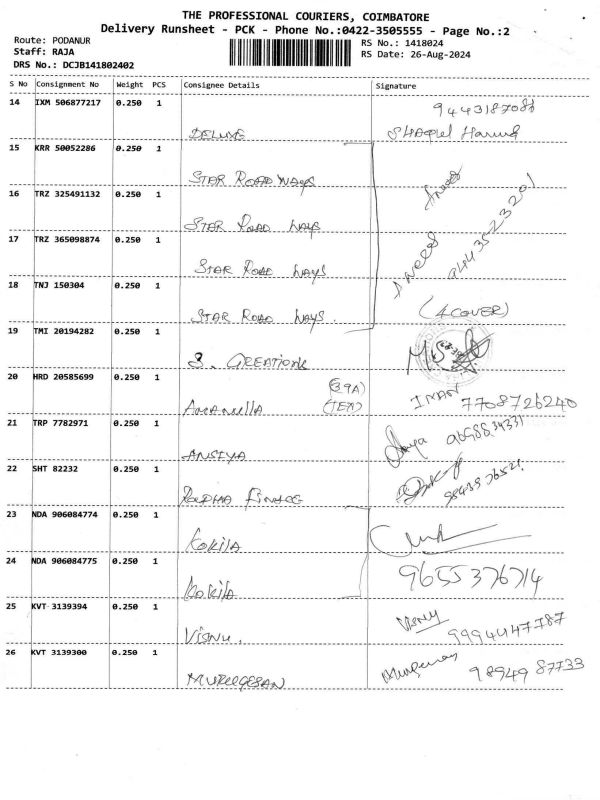 THE PROFESSIONAL COURIERS, COIMBATORE
Delivery Runsheet - PCK - Phone No.:0422-3505555 - Page No.:2
Route: PODANUR
Staff: RAJA
DRS No.: DCJB141802402
RS No.: 1418024
RS Date: 26-Aug-2024
S No Consignment No Weight PCS Consignee Details Signature
14 IXM 506877217 0.250 1
DELUXE
15 KRR 50052286 0.250 1
STAR ROAD WAYS
16 TRZ 325491132 0.250 1
STAR ROAD WAYS
17 TRZ 365098874 0.250 1
STAR ROAD WAYS
18 TNJ 150304 0.250 1
STAR ROAD WAYS.
(4 COVER)
19 TMI 20194282 0.250 1
S. CREATION
20 HRD 20585699 0.250 1
(39A)
Amanulla (TEA)
IMAN
7708726240
21 TRP 7782971 0.250 1
ANSIYA
22 SHT 82232 0.250 1
FINANCE
23 NDA 906084774 0.250 1
KOKILA
24 NDA 906084775 0.250 1
KOKILA
9655376714
25 KVT 3139394 0.250 1
VISNU.
VISNU
9994447787
26 KVT 3139300 0.250 1
MURUGESAN
Murugesan
98949 87733